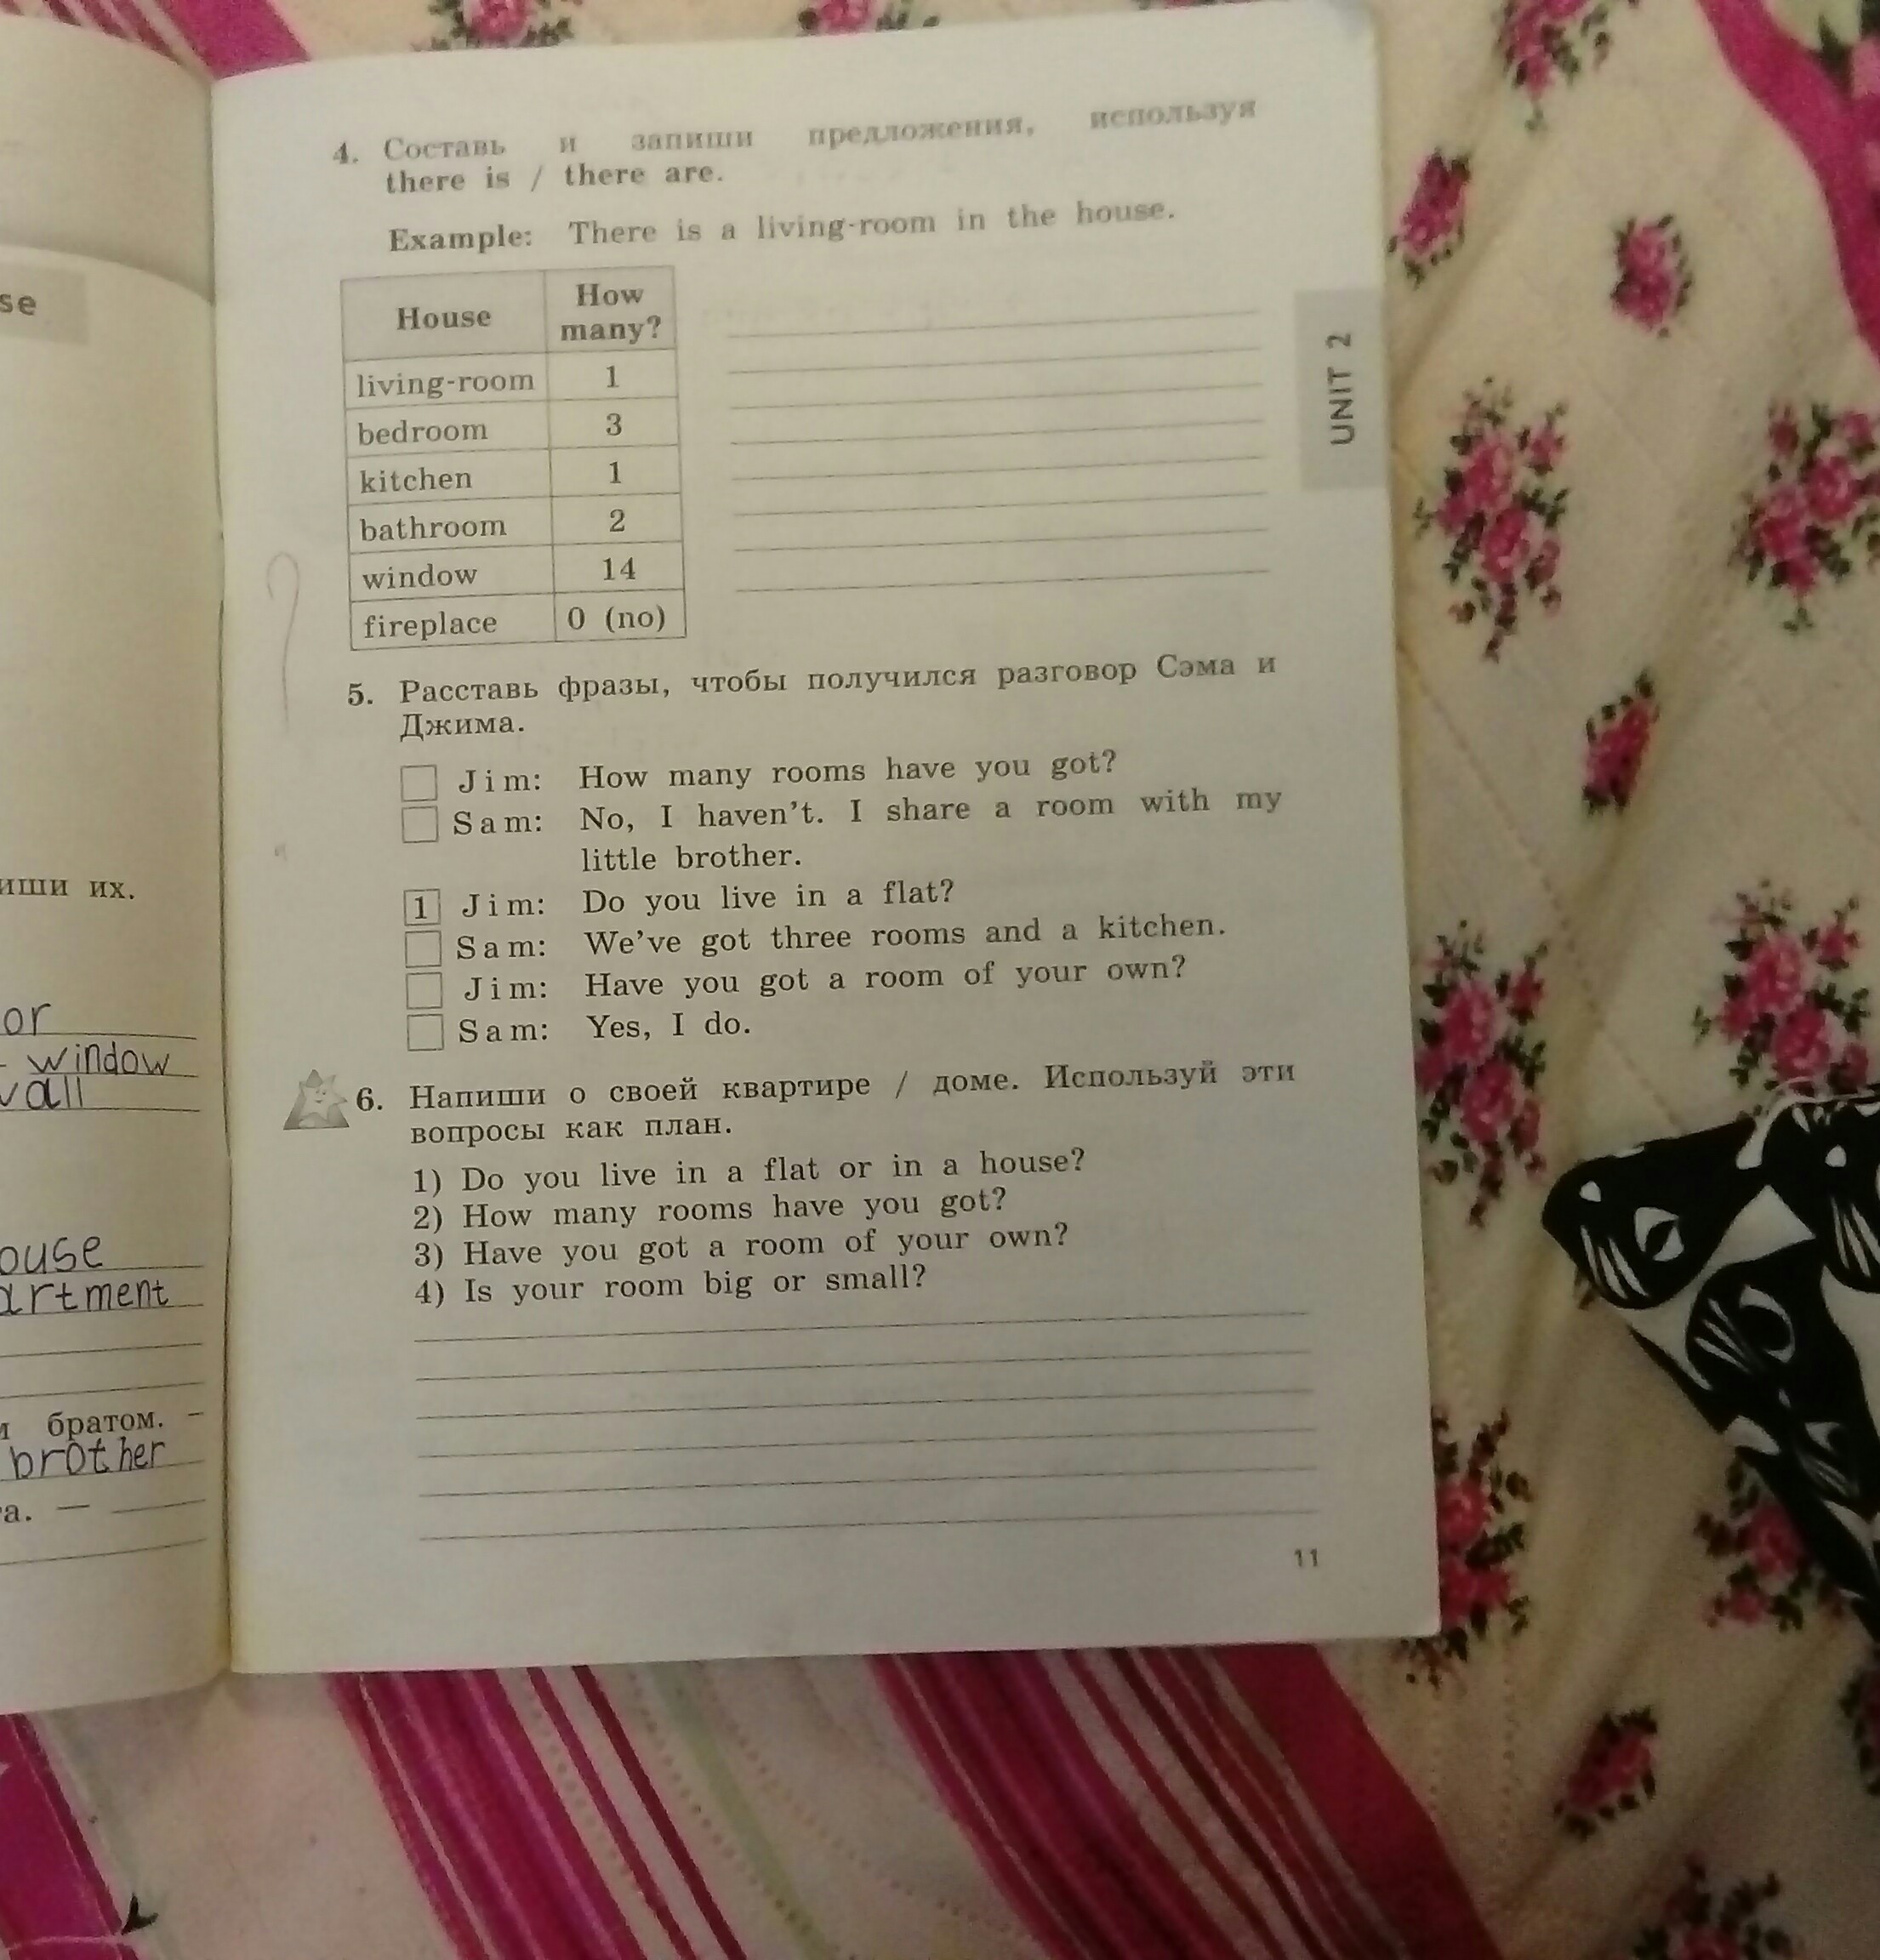 se
иши их.
or
window
all
ouse
artment
братом. –
brother
а. —
4. Составь и запиши предложения, используя
there is / there are.
Example: There is a living-room in the house.
House How many?
living-room 1
bedroom 3
kitchen 1
bathroom 2
window 14
fireplace 0 (no)
UNIT 2
5. Расставь фразы, чтобы получился разговор Сэма и
Джима.
Jim: How many rooms have you got?
Sam: No, I haven't. I share a room with my
little brother.
1 Jim: Do you live in a flat?
Sam: We've got three rooms and a kitchen.
Jim: Have you got a room of your own?
Sam: Yes, I do.
6. Напиши о своей квартире / доме. Используй эти
вопросы как план.
1) Do you live in a flat or in a house?
2) How many rooms have you got?
3) Have you got a room of your own?
4) Is your room big or small?
11